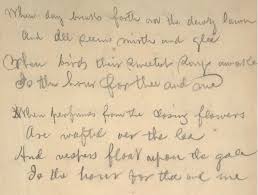 When day breaks forth oer the dewy lawn
And all seems mirth and glee
When birds their sweetest songs awake
Is the hour for thee and me
When perfumes from the closing flowers
Are wafted oer the lea
And vespers float upon the gale
Is the hour for thee and me